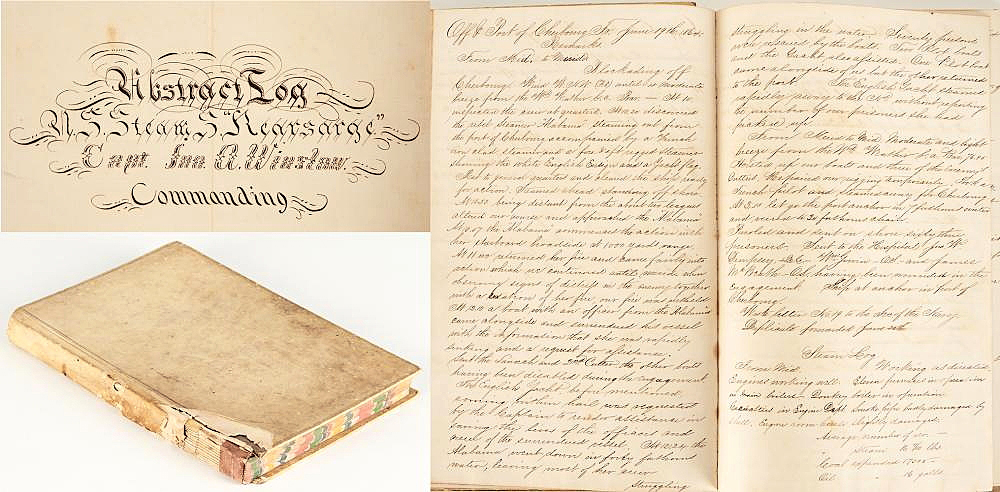 Abstract Log
U.S. Steam S. "Kearsarge"
Capt. Jno. A. Winslow.
Commanding
Off Port of Cherbourg Fr. June 19th
Remarks
From Mid. to Merid
Blockading off
Cherbourg Wind W.N.W. until moderate
breeze from the Wd Weather b.c. Ther. — At 10
inspected the crew at quarters. At 10.20 discovered
the rebel steamer "Alabama" steaming out from
the port of Cherbourg accompanied by a French
iron clad steamer and a fore and aft rigged steamer
showing the white English Ensign and a yacht flag.
Beat to general quarters and cleared the ship ready
for action. Steamed ahead standing off shore
At 10.50 being distant from the about two leagues
altered our course and approached the Alabama
At 10.57 the Alabama commenced the action with
her starboard broadside at 1000 yards range.
At 11.00 returned her fire and came fairly into
action which we continued until meridian when
observing signs of distress in the enemy together
with a cessation of her fire our fire was withheld
At 12.10 a boat with an officer from the Alabama
came alongside and surrendered his vessel
with the information that she was rapidly
sinking and a request for assistance.
Sent the Launch and 2nd Cutter, the other boats
having been disabled during the engagement
The English Yacht before mentioned
coming within hail was requested
by the Captain to render assistance in
saving the lives of the officers and
crew of the surrendered vessel. At 12.24 the
Alabama went down in forty fathoms
water, leaving most of her crew
Struggling
struggling in the water. Seventy persons
were rescued by the boats. Two Pilot boats
and the Yacht also assisted. One Pilot boat
came alongside of us but the other returned
to the port. The English Yacht steamed
rapidly away to the Nd without reporting
the number of our prisoners she had
picked up.
From Merid to Mid Moderate and light
breeze from the Wd Weather b.c.
Hoisted up our boats and three of the enemy's
cutters. Repaired our rigging temporarily.
French pilot and steamed into port Cherbourg
At 3.10 let go the port anchor in fathoms water
and veered to 30 fathoms chain.
Paroled and sent on shore sixty three
prisoners. Sent to the Hospital Jno W.
Dempsey Wm Gowin and James
McBeth having been wounded in the
engagement. Ship at anchor in port of
Cherbourg.
Wrote letter No 19 to the Secy of the Navy
Duplicate forwarded June
Steam Log
From Mid. Working as directed
Engines working well. Eleven furnaces in use in
main boilers — Donkey boiler in operation
Casualties in Engine Dept. Smoke pipe badly damaged by
shell. Engine room slightly damaged.
Average number of rev. —
" Steam
Coal expended
Oil " galls.